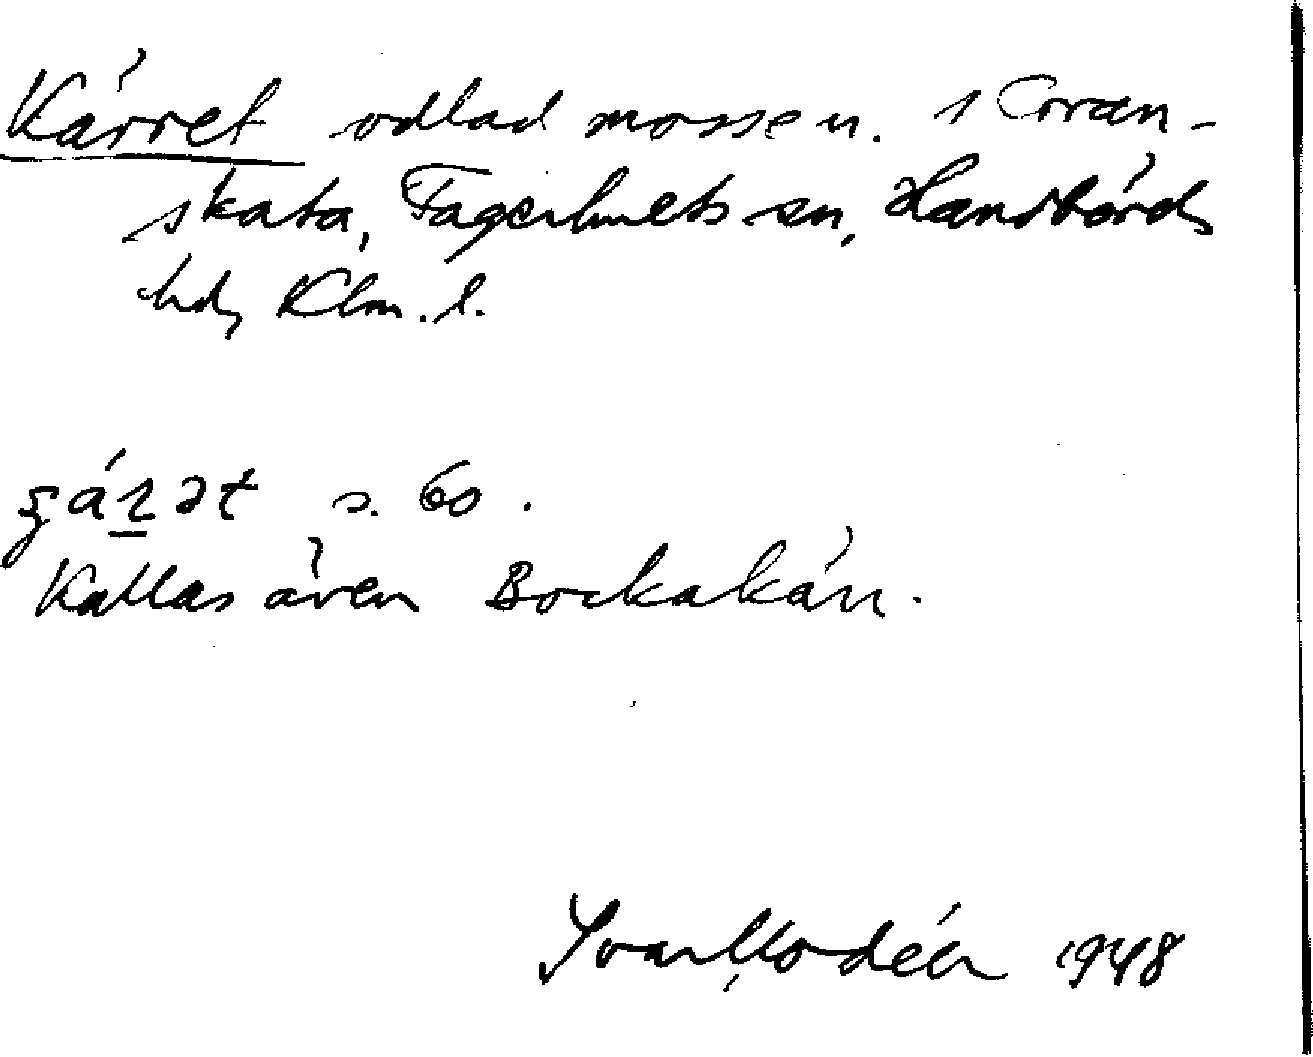 Kärret odlad mosse n. i Gran-
skata, Fagerhults sn, Handbörds
hd, Klm. l.
s. 60.
Kallas även Bockakärr.
Ivar Modéer 1948